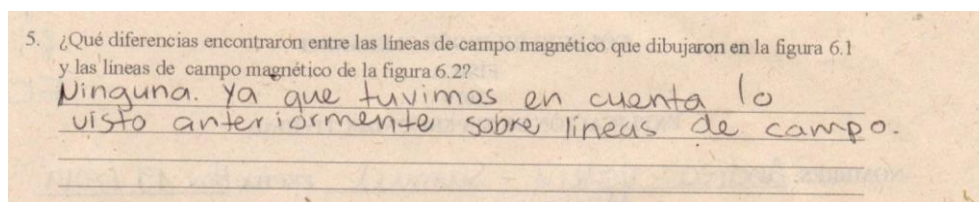 5. ¿Qué diferencias encontraron entre las líneas de campo magnético que dibujaron en la figura 6.1
y las líneas de campo magnético de la figura 6.2?
Ninguna. Ya que tuvimos en cuenta lo
visto anteriormente sobre líneas de campo.